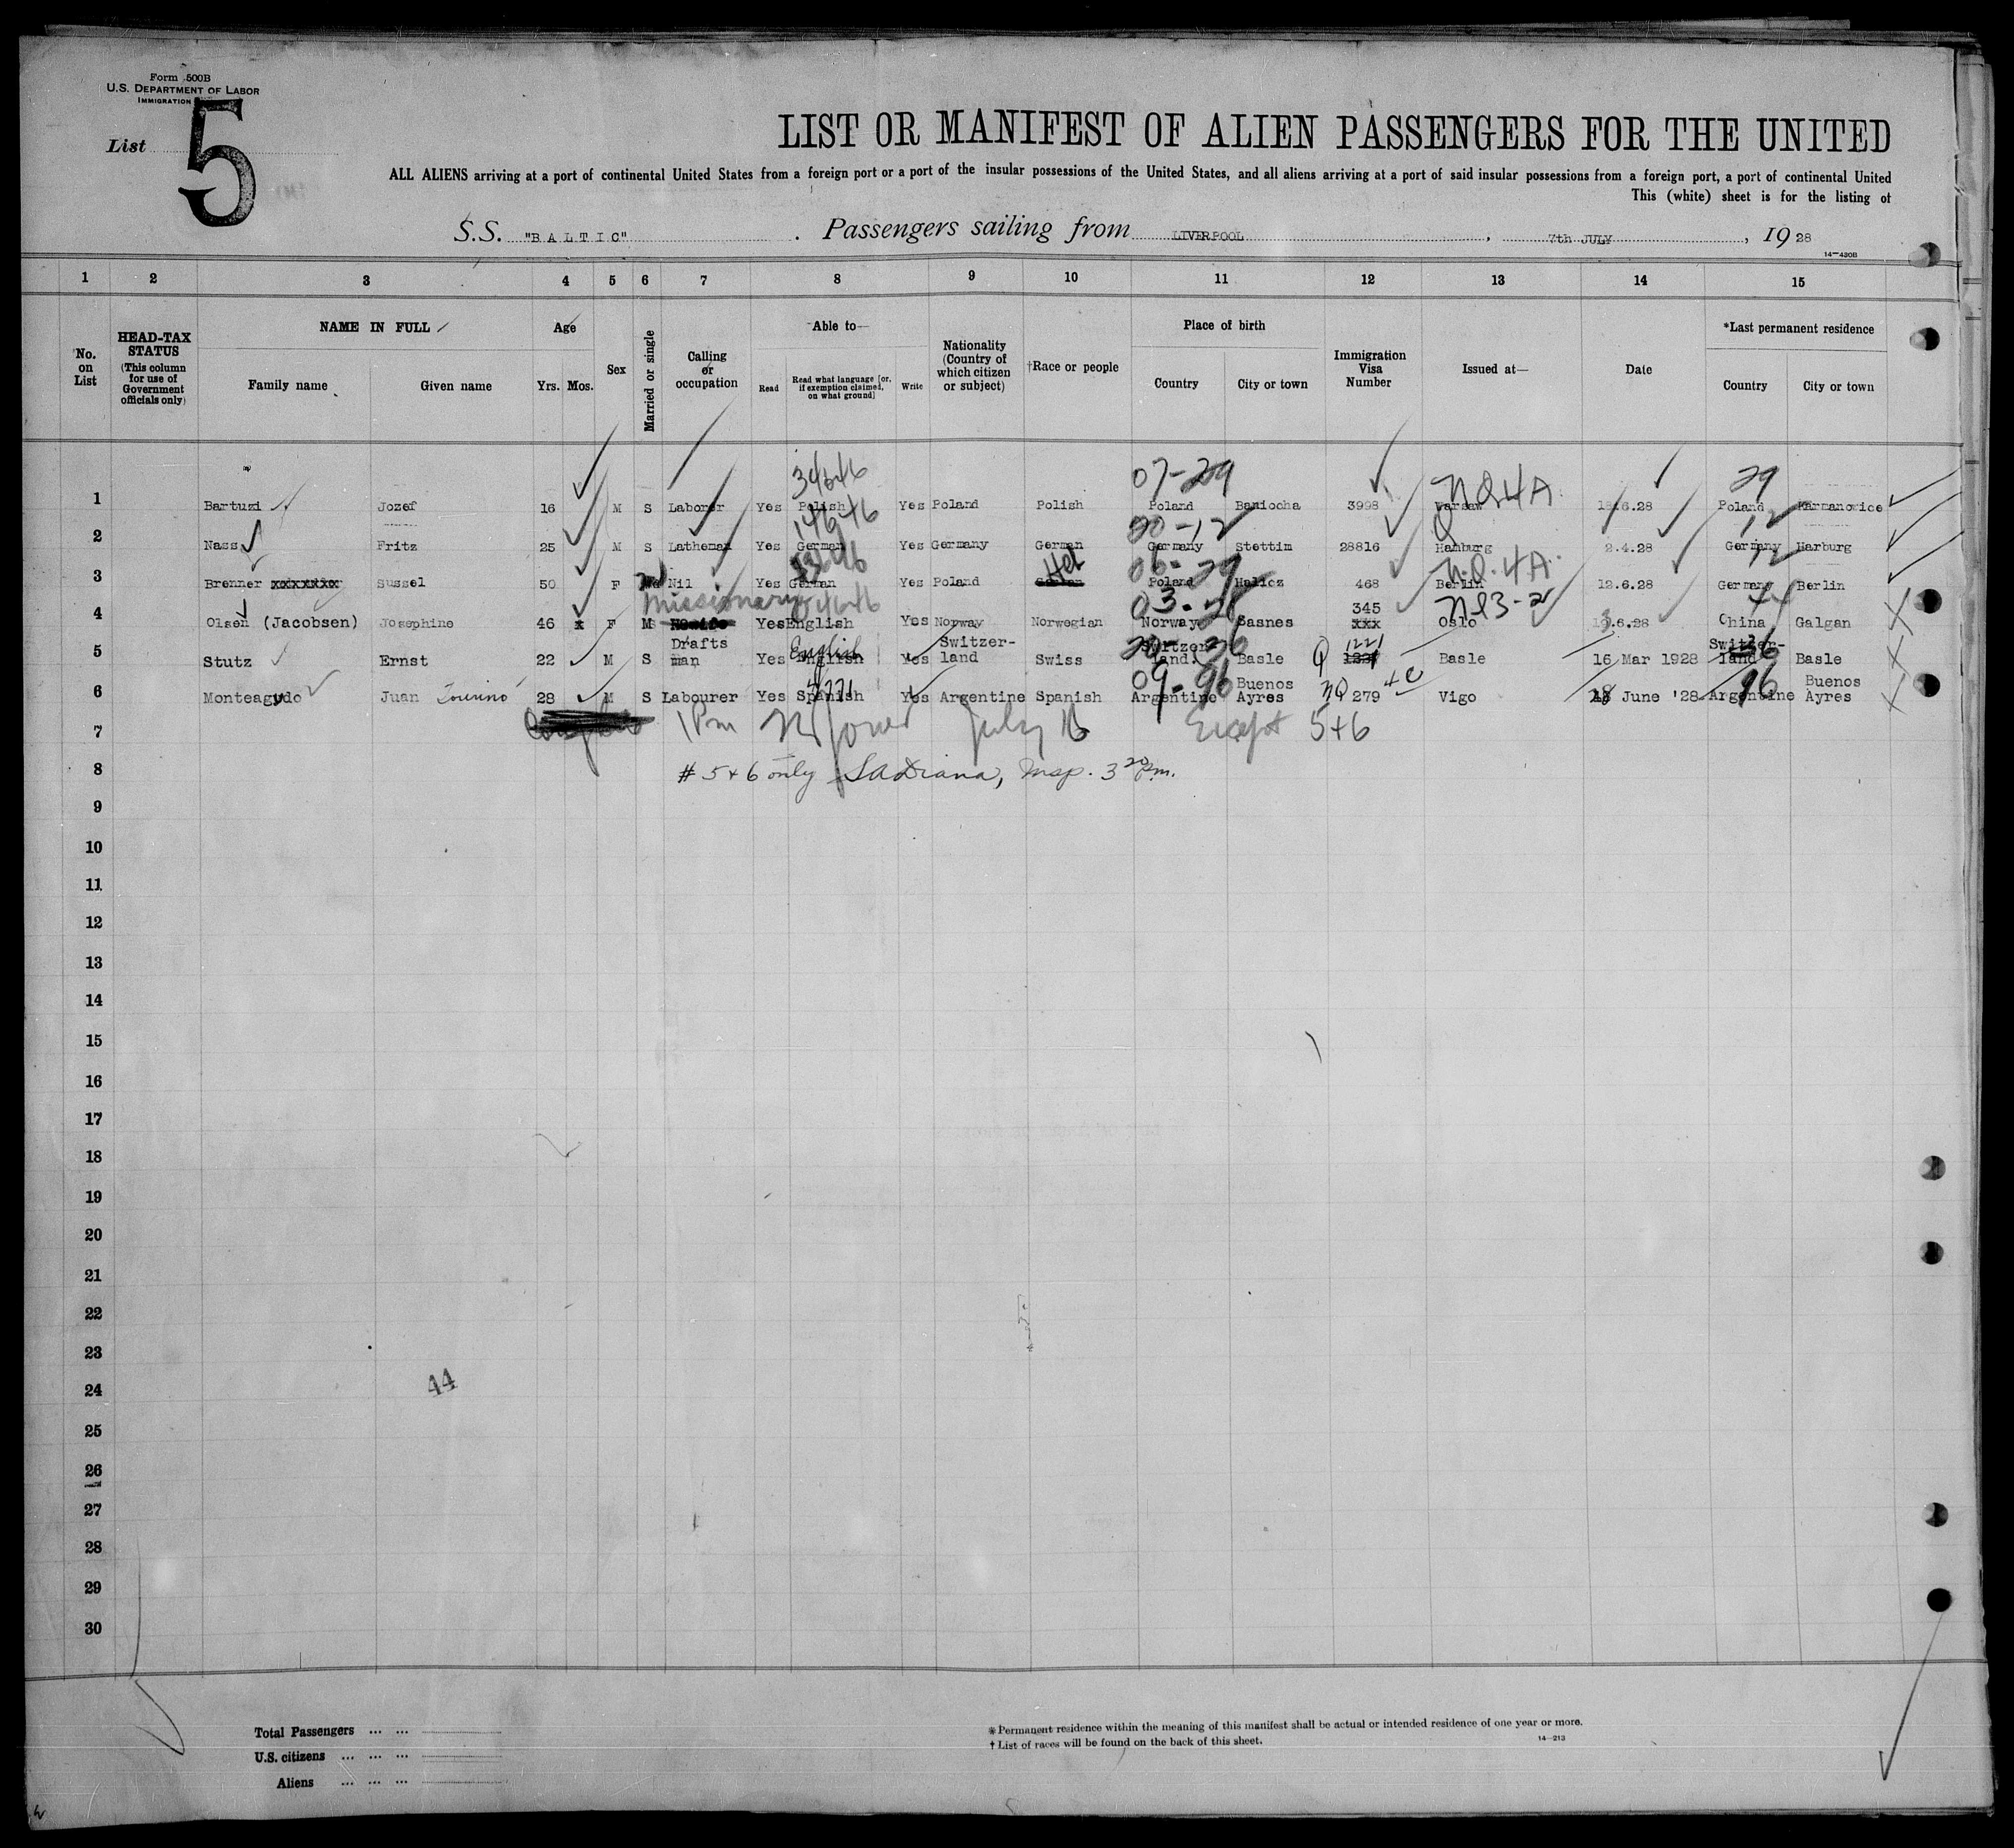 Form 500B
U.S. DEPARTMENT OF LABOR
IMMIGRATION
List 5
LIST OR MANIFEST OF ALIEN PASSENGERS FOR THE UNITED
ALL ALIENS arriving at a port of continental United States from a foreign port or a port of the insular possessions of the United States, and all aliens arriving at a port of said insular possessions from a foreign port, a port of continental United
This (white) sheet is for the listing of
S.S. "BALTIC" . Passengers sailing from LIVERPOOL , 7th JULY , 19 28
14—430B
1 2 3 4 5 6 7 8 9 10 11 12 13 14 15
No. on List
HEAD-TAX STATUS (This column for use of Government officials only)
NAME IN FULL Family name Given name
Age Yrs. Mos.
Sex
Married or single
Calling or occupation
Able to— Read Read what language [or, if exemption claimed, on what ground] Write
Nationality (Country of which citizen or subject)
†Race or people
Place of birth Country City or town
Immigration Visa Number
Issued at—
Date
*Last permanent residence Country City or town
34646 07-29 NQ4A 29
1 Bartuzi Jozef 16 M S Laborer Yes Polish Yes Poland Polish Poland Baniocha 3998 Warsaw .6.28 Poland Karmanowice
14646 20-12 Q 12
2 Nass Fritz 25 M S Latheman Yes German Yes Germany German Germany Stettim 28816 Hamburg 2.4.28 Germany Harburg
06-29 N.Q.4A. 12
3 Brenner xxxxxxx Sussel 50 F Wd Nil Yes German Yes Poland German Heb Poland Halicz 468 Berlin 12.6.28 Germany Berlin
Missionary 4646 03-28 345
4 Olsen (Jacobsen) Josephine 46 x F M S YesEnglish Yes Norway Norwegian Norway Sasnes xxx Oslo .6.28 China Galgan
5 Stutz Ernst 22 M S Drafts man Yes English English Yes Switzer-land Swiss 20-26 Switzer-land Basle Q 1221 Basle 16 Mar 1928 Switzer-land 36 Basle
6 Monteagudo Juan Tourino 28 M S Labourer Yes Spanish Yes Argentine Spanish 09-96 Argentine Buenos Ayres NQ 279 4C Vigo 18 June '28 Argentine 96 Buenos Ayres
7 1 Pm July 16 Except 5+6
8 # 5+6 only Insp. 3 20 Pm.
9
10
11
12
13
14
15
16
17
18
19
20
21
22
23
24 44
25
26
27
28
29
30
Total Passengers ... ...
U.S. citizens ... ... ...
Aliens ... ... ...
* Permanent residence within the meaning of this manifest shall be actual or intended residence of one year or more.
† List of races will be found on the back of this sheet.
14—213